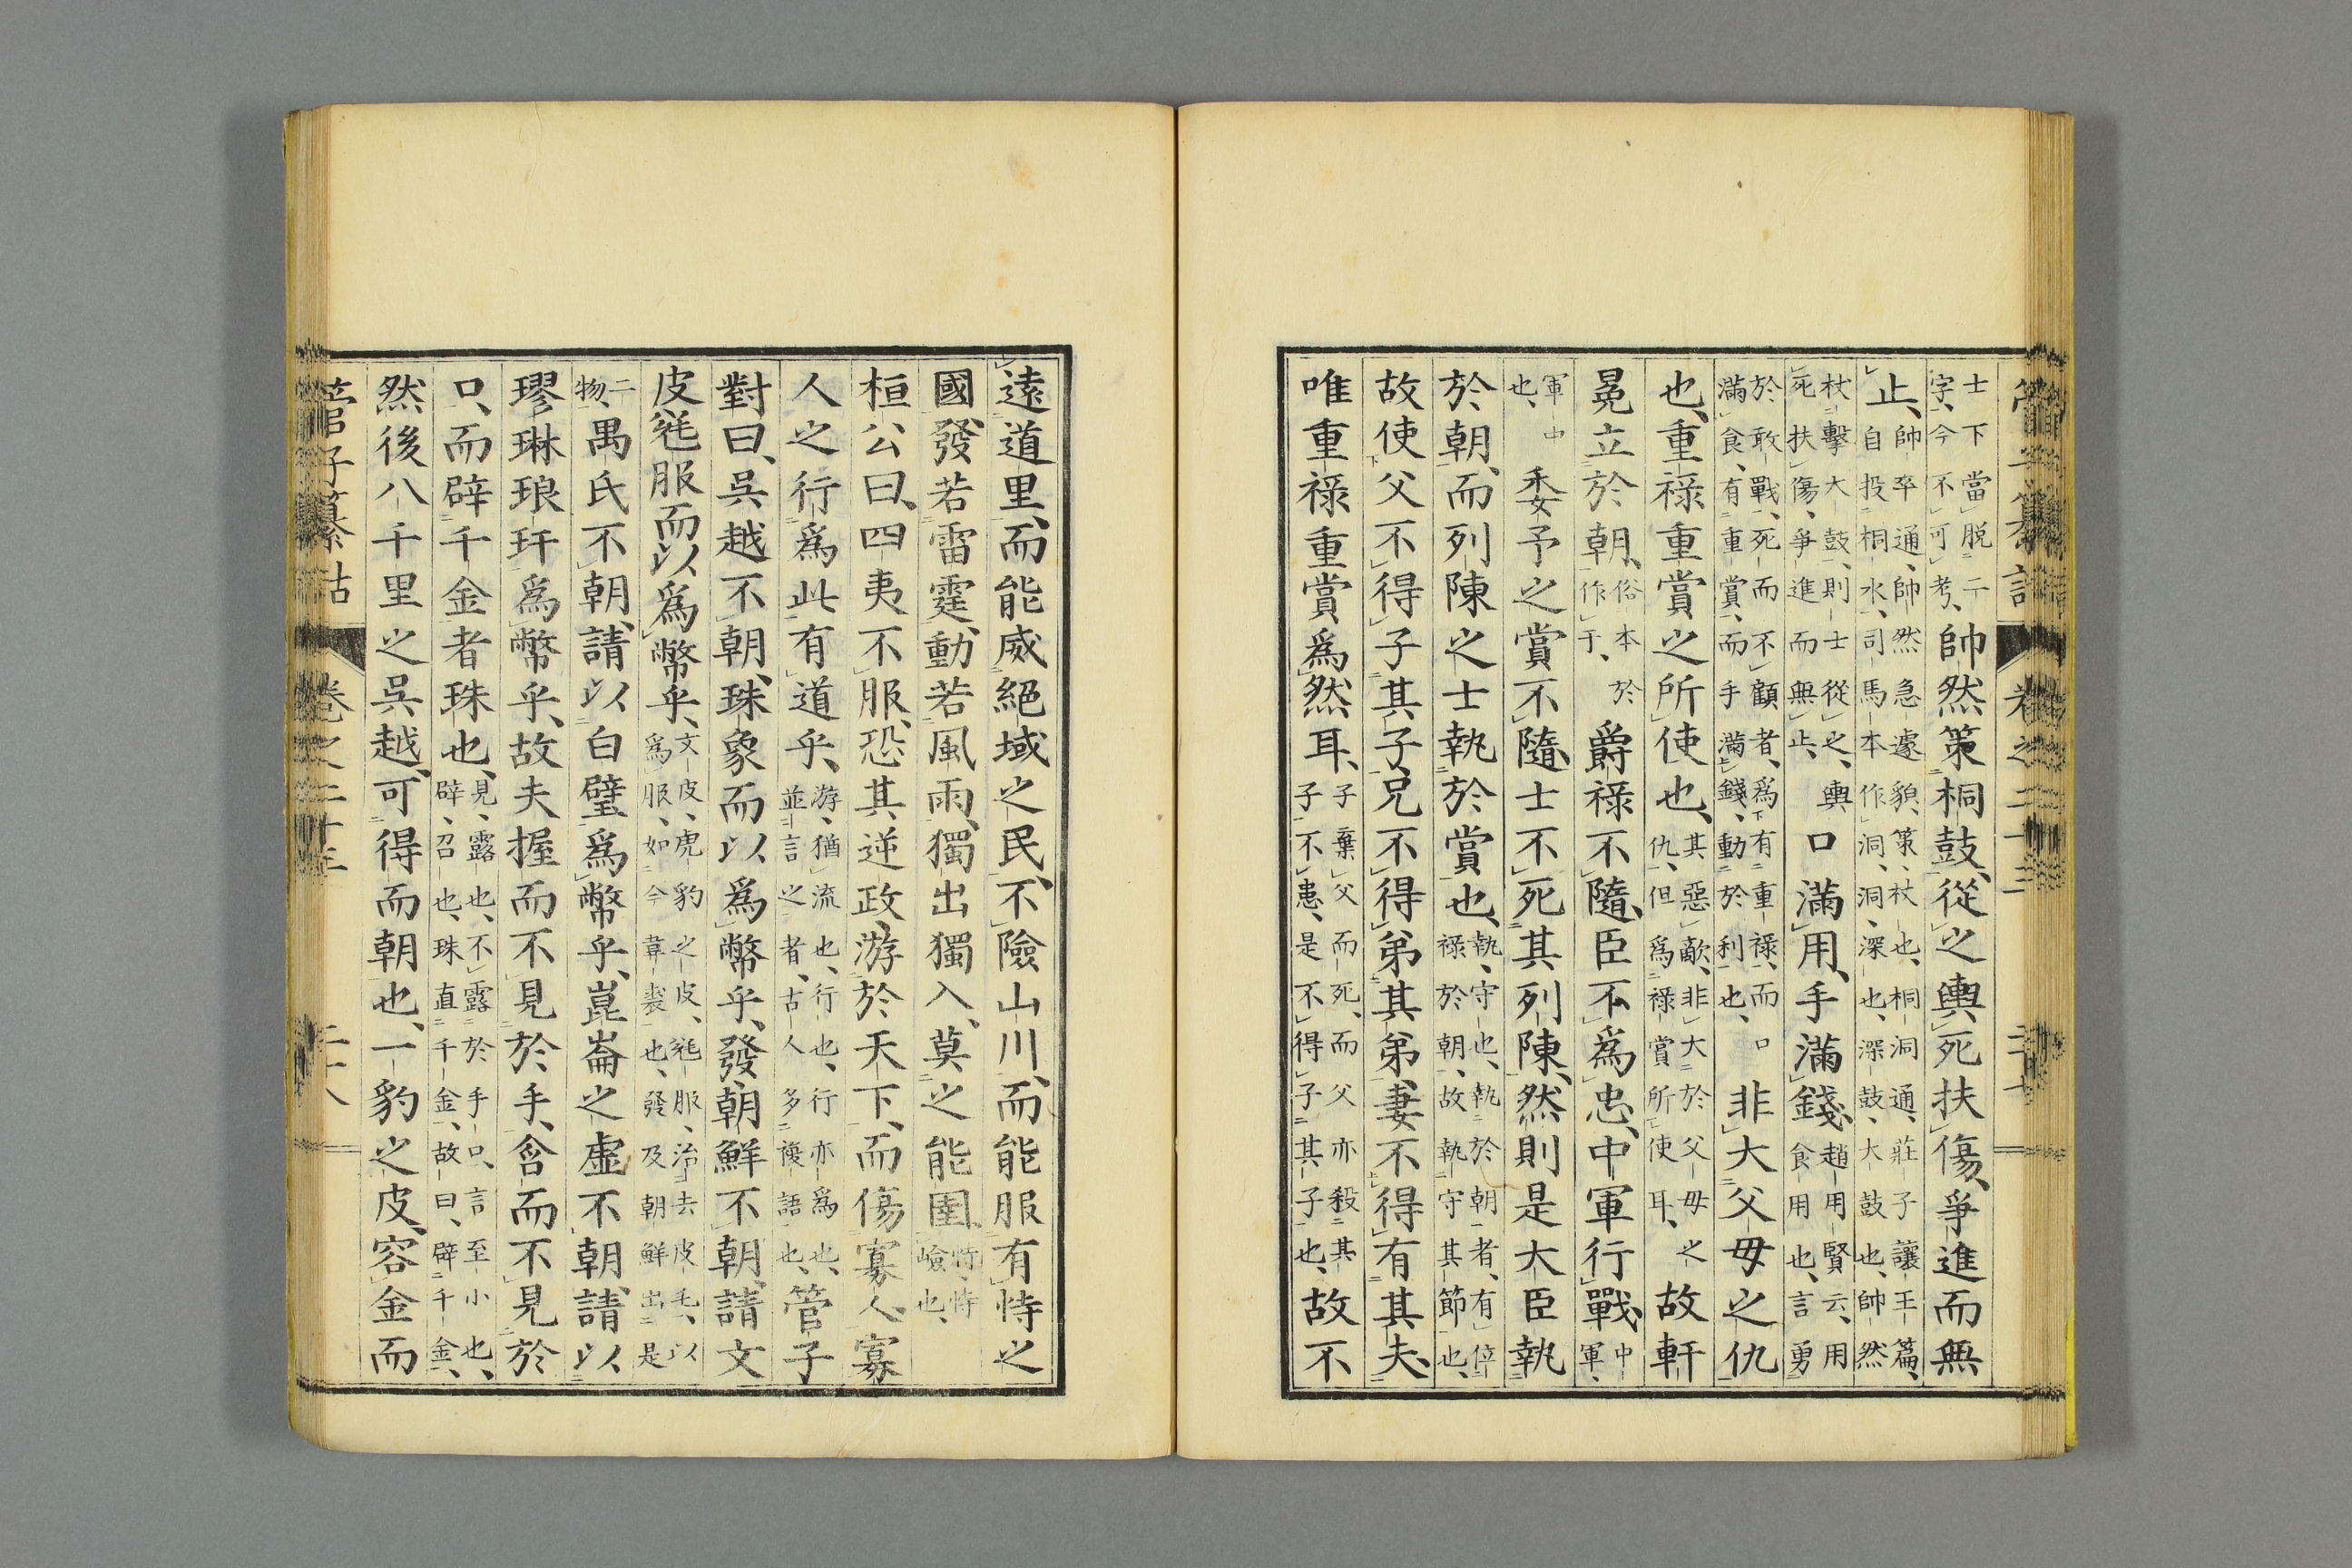 士下當脫二
字今不可考、帥然策桐鼓、從之輿死扶傷、爭進而無
止、帥卒通、帥然急遽貌、策、杖也、桐洞通、莊子讓王篇、
自投桐水、司馬本作洞、洞、深也、深鼓、大鼓也、帥然
杖擊大鼓、則士從之、輿
死扶傷、爭進而無止、口滿用、手滿錢、趙用賢云、用
食用也、言勇
於敢戰、死而不顧者、爲有重祿、而口
滿食、有重賞、而手滿錢、動於利也、非大父母之仇
也、重祿重賞之所使也、其惡敵、非大於父母之
仇、但爲祿賞所使耳、故軒
冕立於朝、俗本於
作于、爵祿不隨、臣不爲忠、中軍行戰、中
軍、
軍中
也、委予之賞不隨、士不死其列陳、然則是大臣執
於朝、而列陳之士執於賞也、執、守也、執於朝者、有位
祿於朝、故執守其節也、
故使父不得子其子、兄不得弟其弟、妻不得有其夫、
唯重祿重賞爲然耳、子棄父而死、而父亦殺其
子不患、是不得子其子也、故不
管子纂詁 卷之二十三 二十七
遠道里、而能威絕域之民、不險山川、而能服有恃之
國、發若雷霆、動若風雨、獨出獨入、莫之能圉、恃、恃
嶮也、
桓公曰、四夷不服、恐其逆政、游於天下、而傷寡人、寡
人之行、爲此有道乎、游、猶流也、行也、行亦爲也、
並言之者、古人多複語也、管子
對曰、吳越不朝、珠象而以爲幣乎、發朝鮮不朝、請文
皮毤服而以爲幣乎、文皮、虎豹之皮、毤服、治去皮毛、以
爲服、如今韋裘也、發及朝鮮出是
二
物、禺氏不朝、請以白璧爲幣乎、崑崙之虛不朝、請以
璆琳琅玕爲幣乎、故夫握而不見於手、含而不見於
口、而辟千金者珠也、見、露也、不露於手口、言至小也、
辟、召也、珠直千金、故曰、辟千金、
然後八千里之吳越、可得而朝也、一豹之皮、容金而
管子纂詁 卷之二十三 二十八